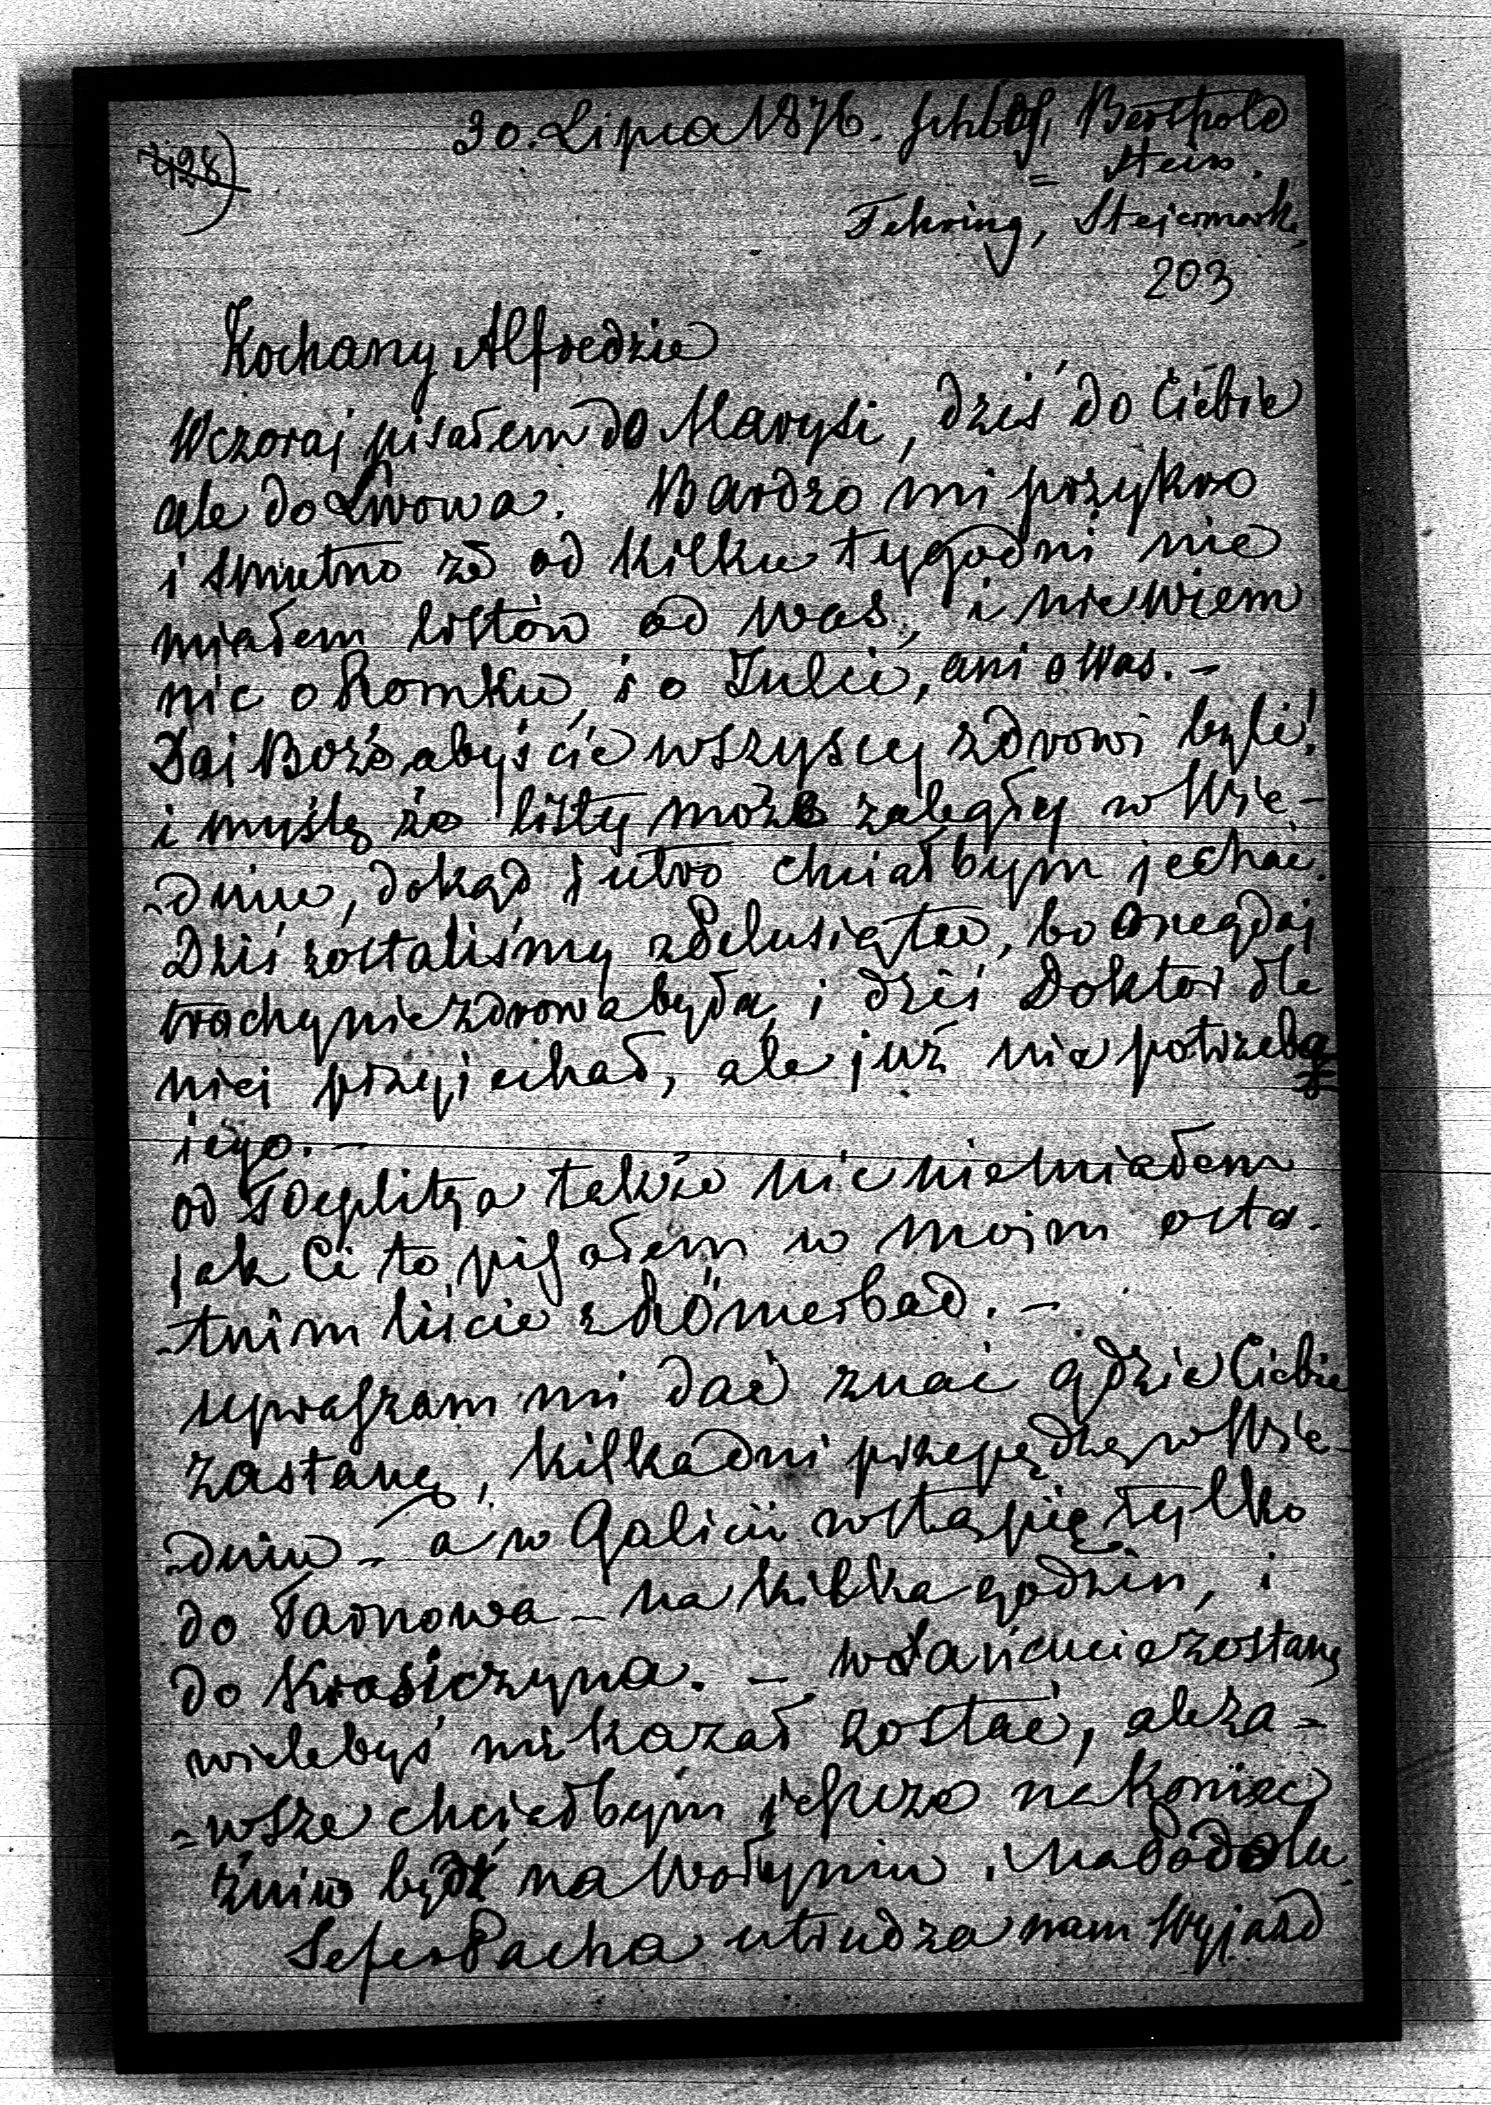 428)
30. Lipca 1876. Schloß, Berthold
= Stein.
Fehring, Steiermark,
203
Kochany Alfredzie
Wczoraj pisałem do Marysi, dziś do Ciebie
ale do Lwowa. Bardzo mi przykro
i smutno że od kilku tygodni nie
miałem listów od was, i niewiem
nic o Romku, i o Julci, ani o Was. –
Daj Boże abyście wszyscy zdrowi byli!
i myślę że listy może zaległy w Wie-
-dniu, dokąd jutro chciałbym jechać.
Dziś zostaliśmy zElusią tu, bo onegdaj
trochę niezdrowa była, i dziś Doktor dla
niej przyjechał, ale już nie potrzeba
jego. –
od Toeplitza także nic nie miałem
jak Ci to pisałem w moim osta-
-tnim liście z Römerbad. –
upraszam mi dać znać gdzie Ciebie
zastanę, kilka dni przepędzę w Wie-
-dniu – a w Galicii wstąpię tylko
do Tarnowa – na kilka godzin, i
do Krasiczyna. – w Łańcucie zostanę
wielebyś mi kazał zostać, ale za=
=wsze chciałbym jeszcze na koniec
żniw być na Wołyniu i na Podolu
Sefer Pacha utrudza nam wyjazd